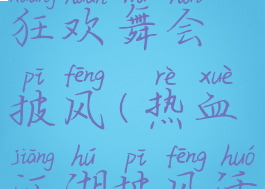 狂欢舞会
pī fēng rè xuè
披风(热血
jiāng hú pī fēng huó
江湖披风活